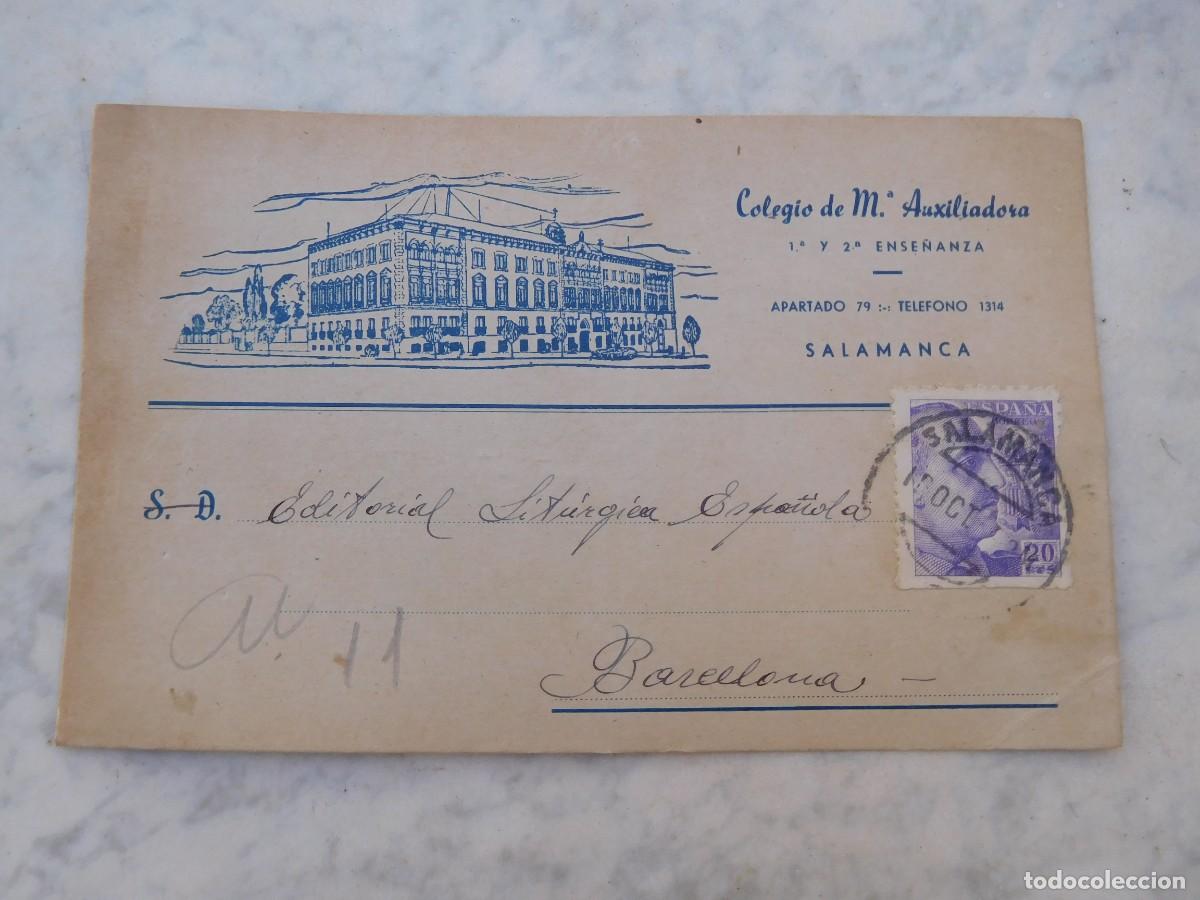 Colegio de M.ª Auxiliadora
1.ª Y 2.ª ENSEÑANZA
APARTADO 79 :-: TELEFONO 1314
SALAMANCA
ESPAÑA
CORREOS
SALAMANCA
OCT
20
CTS
S. D. Editorial Litúrgica Española
11
Barcelona –
todocoleccion